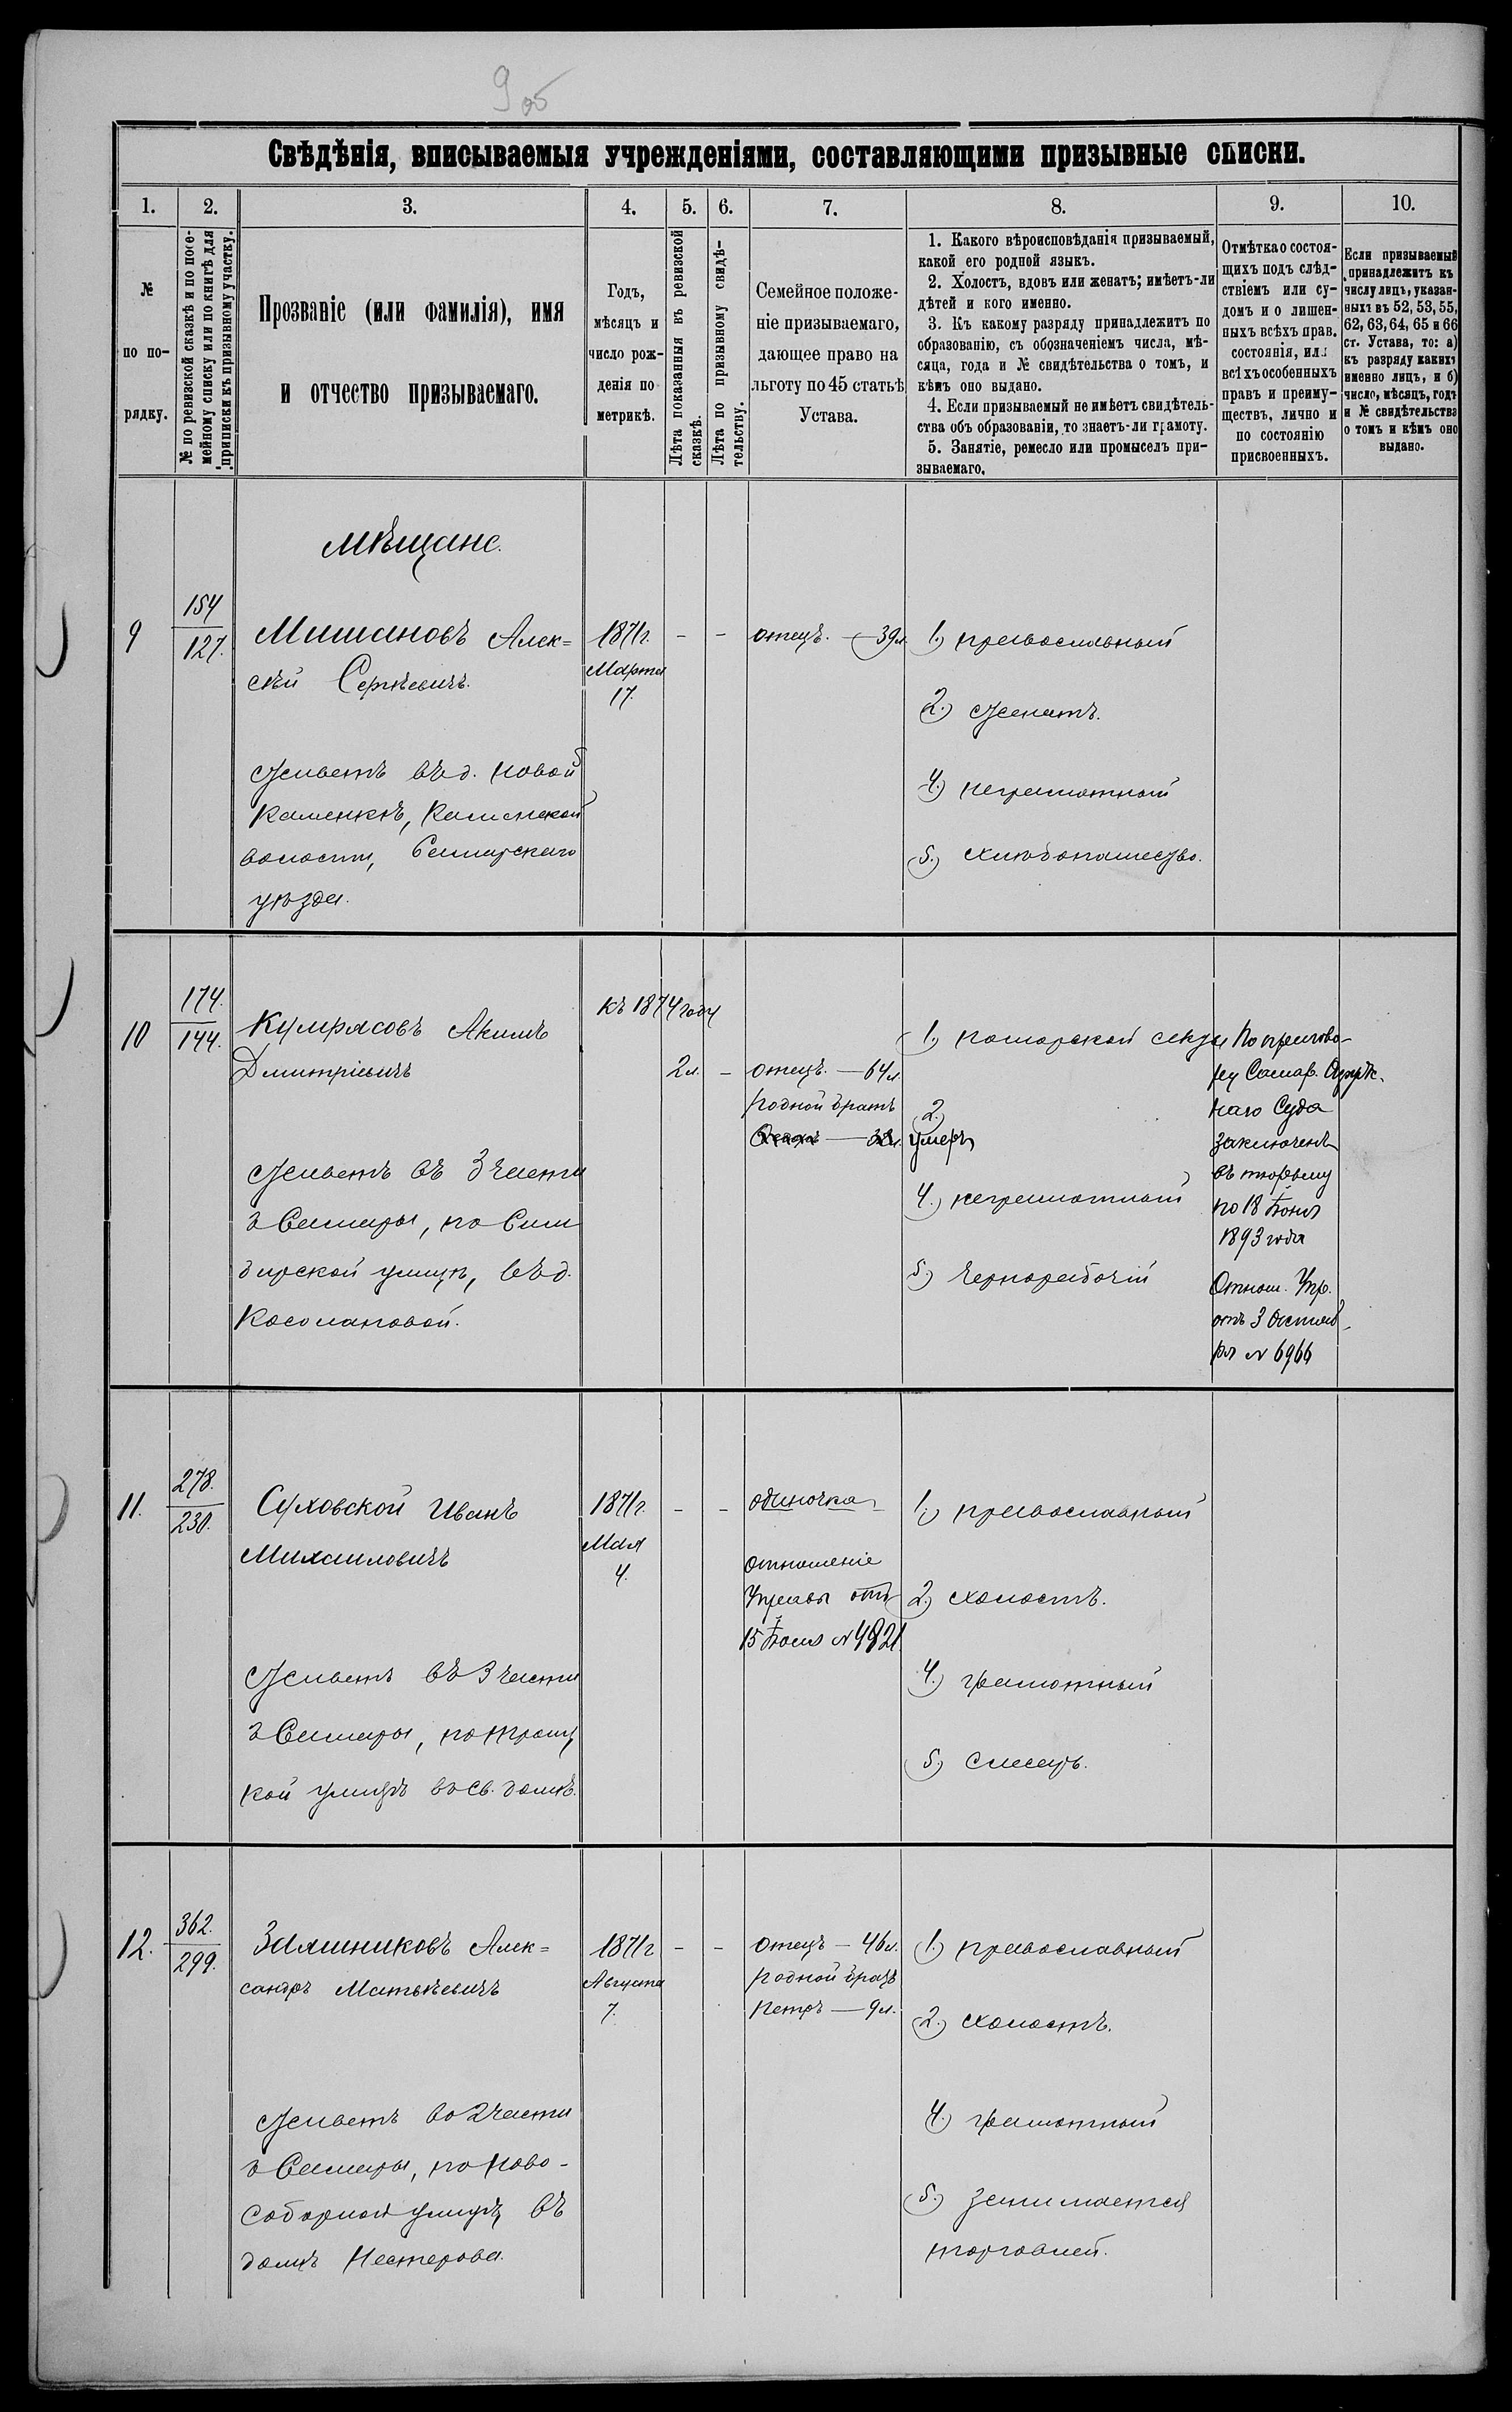 9 об
Свѣдѣнія, вписываемыя учрежденіями, составляющими призывные списки.
1. 2. 3. 4. 5. 6. 7. 8. 9. 10.
№
по по-
рядку.
№ по ревизской сказкѣ и по посе-
мейному списку или по книгѣ для
приписки къ призывному участку.
Прозваніе (или фамилія), имя
и отчество призываемаго.
Годъ,
мѣсяцъ и
число рож-
денія по
метрикѣ.
Лѣта показанныя въ ревизской
сказкѣ.
Лѣта по призывному свидѣ-
тельству.
Семейное положе-
ніе призываемаго,
дающее право на
льготу по 45 статьѣ
Устава.
1. Какого вѣроисповѣданія призываемый,
какой его родной языкъ.
2. Холостъ, вдовъ или женатъ; имѣетъ-ли
дѣтей и кого именно.
3. Къ какому разряду принадлежитъ по
образованію, съ обозначеніемъ числа, мѣ-
сяца, года и № свидѣтельства о томъ, и
кѣмъ оно выдано.
4. Если призываемый не имѣетъ свидѣтель-
ства объ образованіи, то знаетъ-ли грамоту.
5. Занятіе, ремесло или промыселъ при-
зываемаго.
Отмѣтка о состоя-
щихъ подъ слѣд-
ствіемъ или су-
домъ и о лишен-
ныхъ всѣхъ прав.
состоянія, или
всѣхъ особенныхъ
правъ и преиму-
ществъ, лично и
по состоянію
присвоенныхъ.
Если призываемый
принадлежитъ къ
числу лицъ, указан-
ныхъ въ 52, 53, 55,
62, 63, 64, 65 и 66
ст. Устава, то: а)
къ разряду какихъ
именно лицъ, и б)
число, мѣсяцъ, годъ
и № свидѣтельства
о томъ и кѣмъ оно
выдано.
Мѣщане.
9
154
127.
Мишановъ Алек=
сѣй Сергѣевичъ.
Живетъ въ д. Новой
Каменкѣ, Каменской
волости, Самарскаго
уѣзда.
1871 г.
Марта
17.
- -
отецъ. — 39 л.
1.) православный
2.) женатъ.
4.) неграмотный
5.) хлѣбопашество.
10
174.
144.
Кумрясовъ Акимъ
Дмитріевичъ
Живетъ въ 3 части
г Самары, по Сим
бирской улицѣ, въ д.
Косолаповой.
къ 1874 году
2 л. -
отецъ. — 64 л.
родной братъ
умеръ
1.) поморской секты
2.)
4.) неграмотный
5.) чернорабочій
По пригово-
ру Самар. Окруж.
наго Суда
заключенъ
въ тюрьму
по 18 Іюня
1893 года
Отнош. Упр.
отъ 3 Октяб-
ря № 6966
11.
278.
230.
Суховской Иванъ
Михаиловичъ
Живетъ въ 3 части
г Самары, по Троиц
кой улицѣ въ св. домѣ.
1871 г.
Мая
4.
- -
одиночка
отношеніе
Управы отъ
15 Іюля № 4821.
1.) православный
2.) холостъ.
4.) грамотный
5.) слесарь.
12.
362.
299.
Залшниковъ Алек=
сандръ Матвѣевичъ
Живетъ во 2 части
г Самары, по Ново-
соборной улицѣ, въ
домѣ Нестерова.
1871 г
Августа
7.
- -
отецъ — 46 л.
родной братъ
Петръ — 9 л.
1.) православный
2.) холостъ.
4.) грамотный
5.) занимается
торговлей.